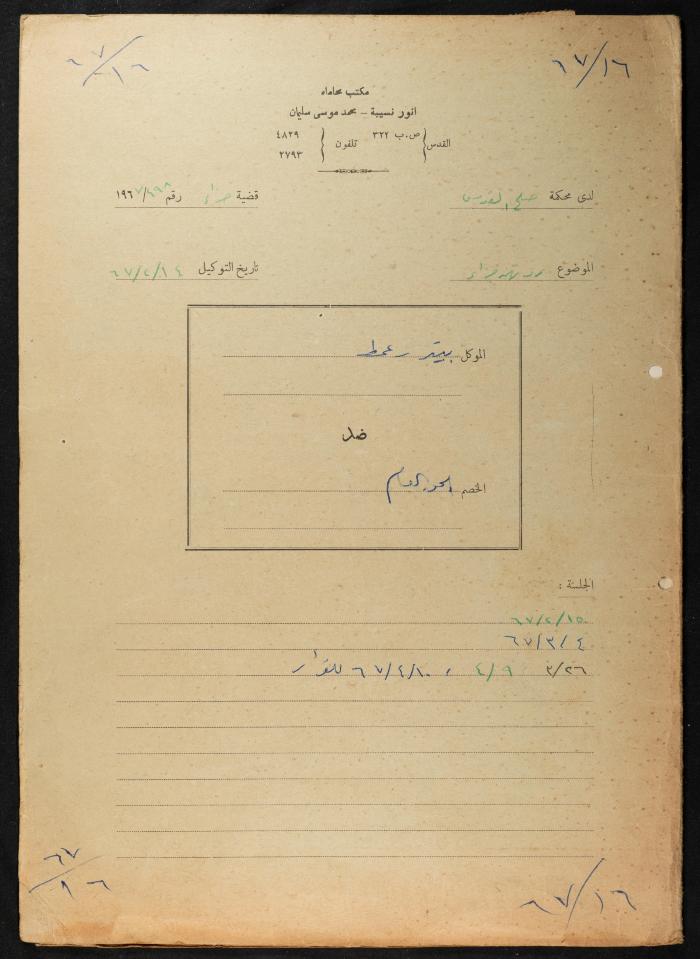 ٦٧/١٦
٦٧/١٦
مكتب محاماه
انور نسيبة - محمد موسى سليمان
القدس ص.ب ٣٢٢ تلفون ٤٨٢٩
٢٧٩٣
لدى محكمة صلح القدس قضية جزاء رقم ١٩٦٧/٦٩٨
الموضوع تاريخ التوكيل ٦٧/٢/١٤
الموكل بيتر
ضد
الخصم الحق العام
الجلسة :
٦٧/٢/١٥
٦٧/٣/٤
٣/٢٦ ٤/٩ ، ٦٧/٤/١٠ للقرار
٦٧/١٦
٦٧/١٦